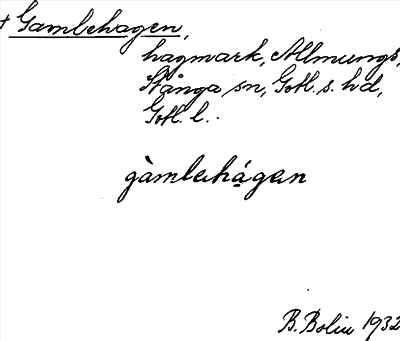 + Gamblehagen,
hagmark, Allmungs,
Stånga sn, Gotl. s. hd,
Gotl. l.
gàmblahá̤gen
B. Bolin 1932